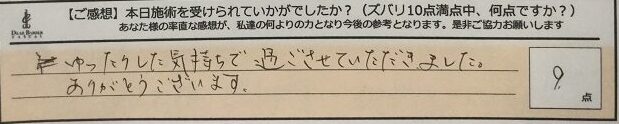 【ご感想】本日施術を受けられていかがでしたか？（ズバリ10点満点中、何点ですか？）
あなた様の率直な感想が、私達の何よりの力となり今後の参考となります。是非ご協力お願いします
ゆったりした気持ちで過ごさせていただきました。
ありがとうございます。
9.
点